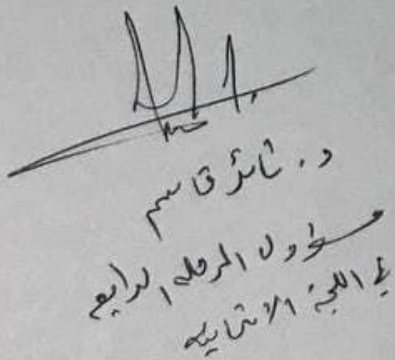 د. ثائر قاسم
مسؤول المرحلة الرابعه
في اللجنة الامتحانيه